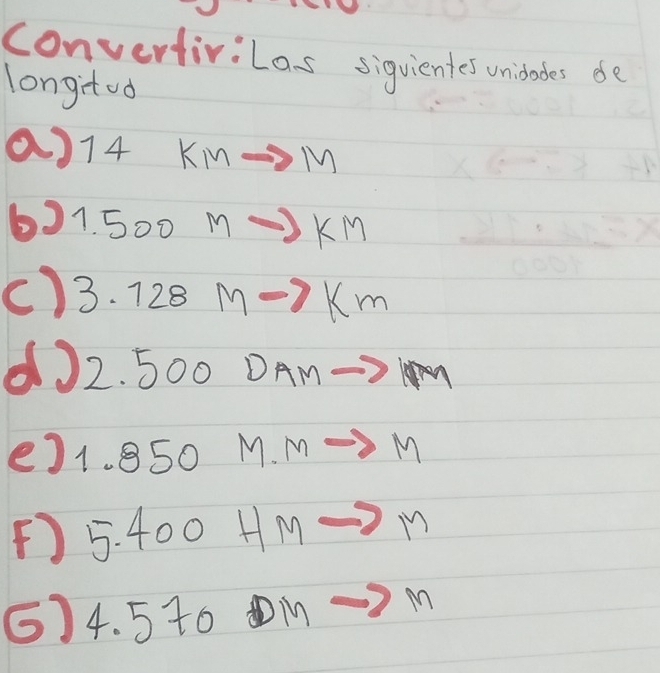 Convertir: Las siguientes unidades de
longitud
a) 14 KM → M
b) 1.500 M → KM
c) 3.128 M → Km
d) 2.500 DAM →
e) 1.850 M.M → M
F) 5.400 HM → M
G) 4.570 DM → M